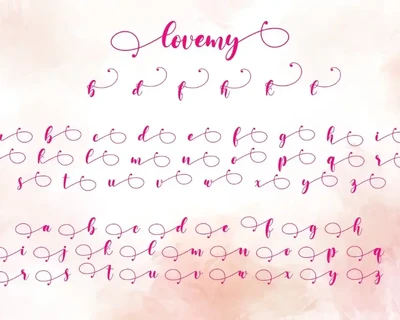 lovemy
b d f h k t
a b c d e f g h i
k l m n o p q r
s t u v w x y z
a b c d e f g h
i j k l m n o p q
r s t u v w x y z